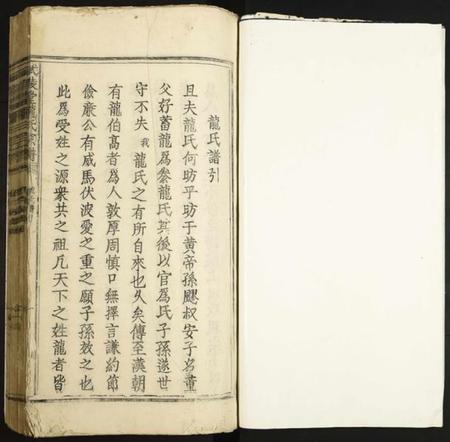 龍氏譜引
且夫龍氏何昉乎昉于黄帝孫飂叔安子名董
父好蓄龍爲豢龍氏其後以官爲氏子孫遂世
守不失我龍氏之有所自來也久矣傳至漢朝
有龍伯高者爲人敦厚周慎口無擇言謙約節
儉亷公有威馬伏波愛之重之願子孫效之也
此爲受姓之源衆共之祖凡天下之姓龍者皆
武陵
龍氏宗譜